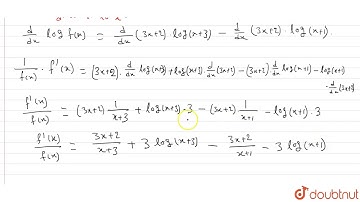 d/dx log f(x) = d/dx (3x+2)·log(x+3) - d/dx (3x+2)·log(x+1).
1/f(x) · f'(x) = (3x+2)·d/dx log(x+3) + log(x+3)·d/dx(3x+2) - (3x+2) d/dx log(x+1) - log(x+1)
· d/dx (3x+2)
f'(x)/f(x) = (3x+2) 1/(x+3) + log(x+3)·3 - (3x+2) 1/(x+1) - log(x+1)·3
f'(x)/f(x) = (3x+2)/(x+3) + 3 log(x+3) - (3x+2)/(x+1) - 3 log(x+1)
doubtnut